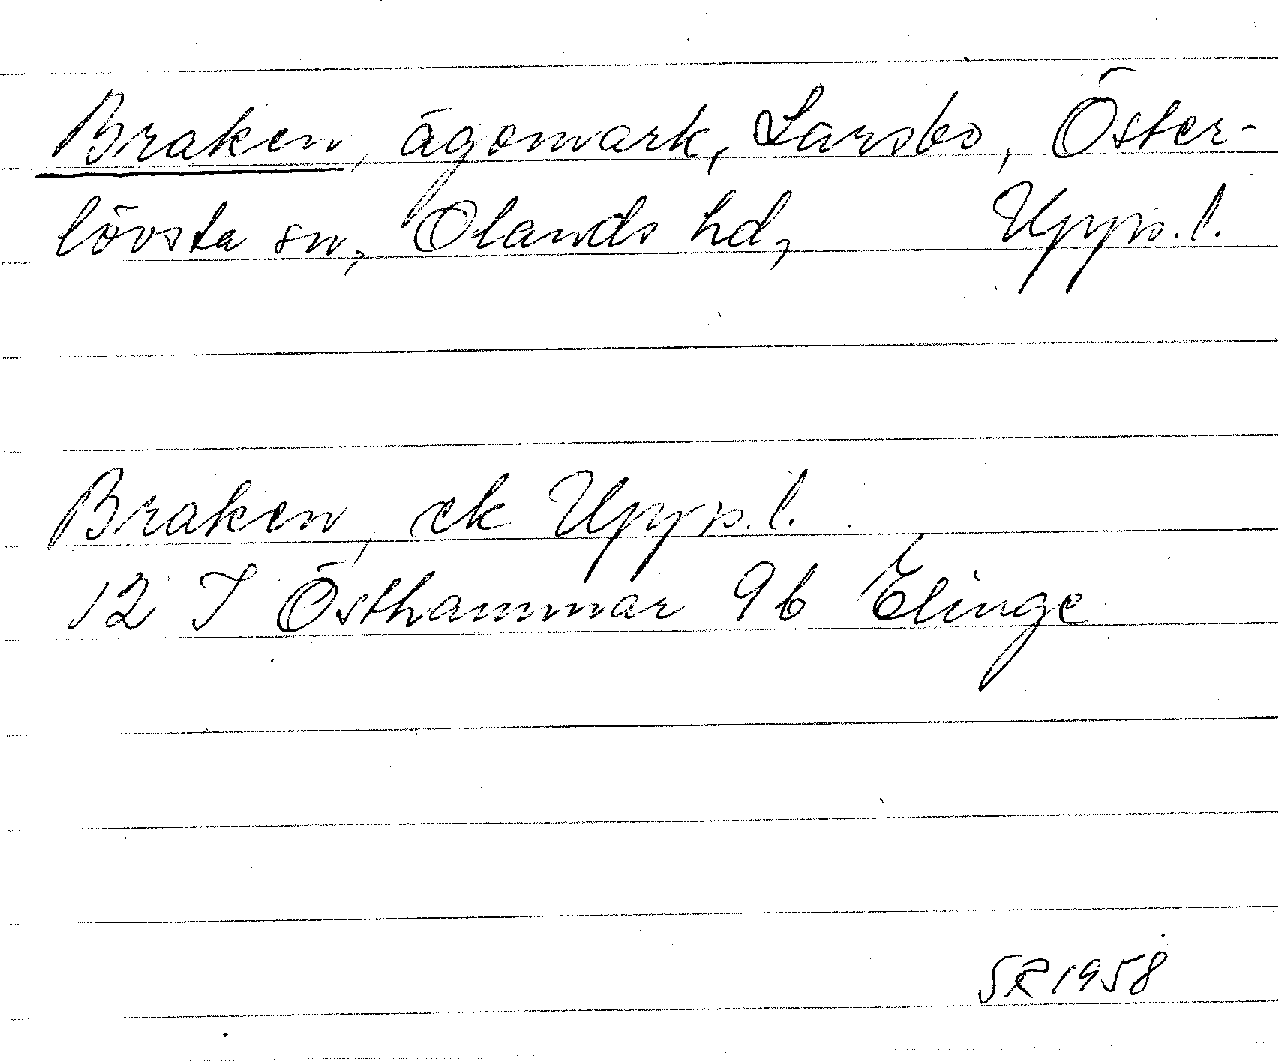 Braken, ägomark, Larsbo, Öster-
lövsta sn, Olands hd, Uppl.
Braken, ek Uppl.
12 I Östhammar 9b Elinge
SR 1958